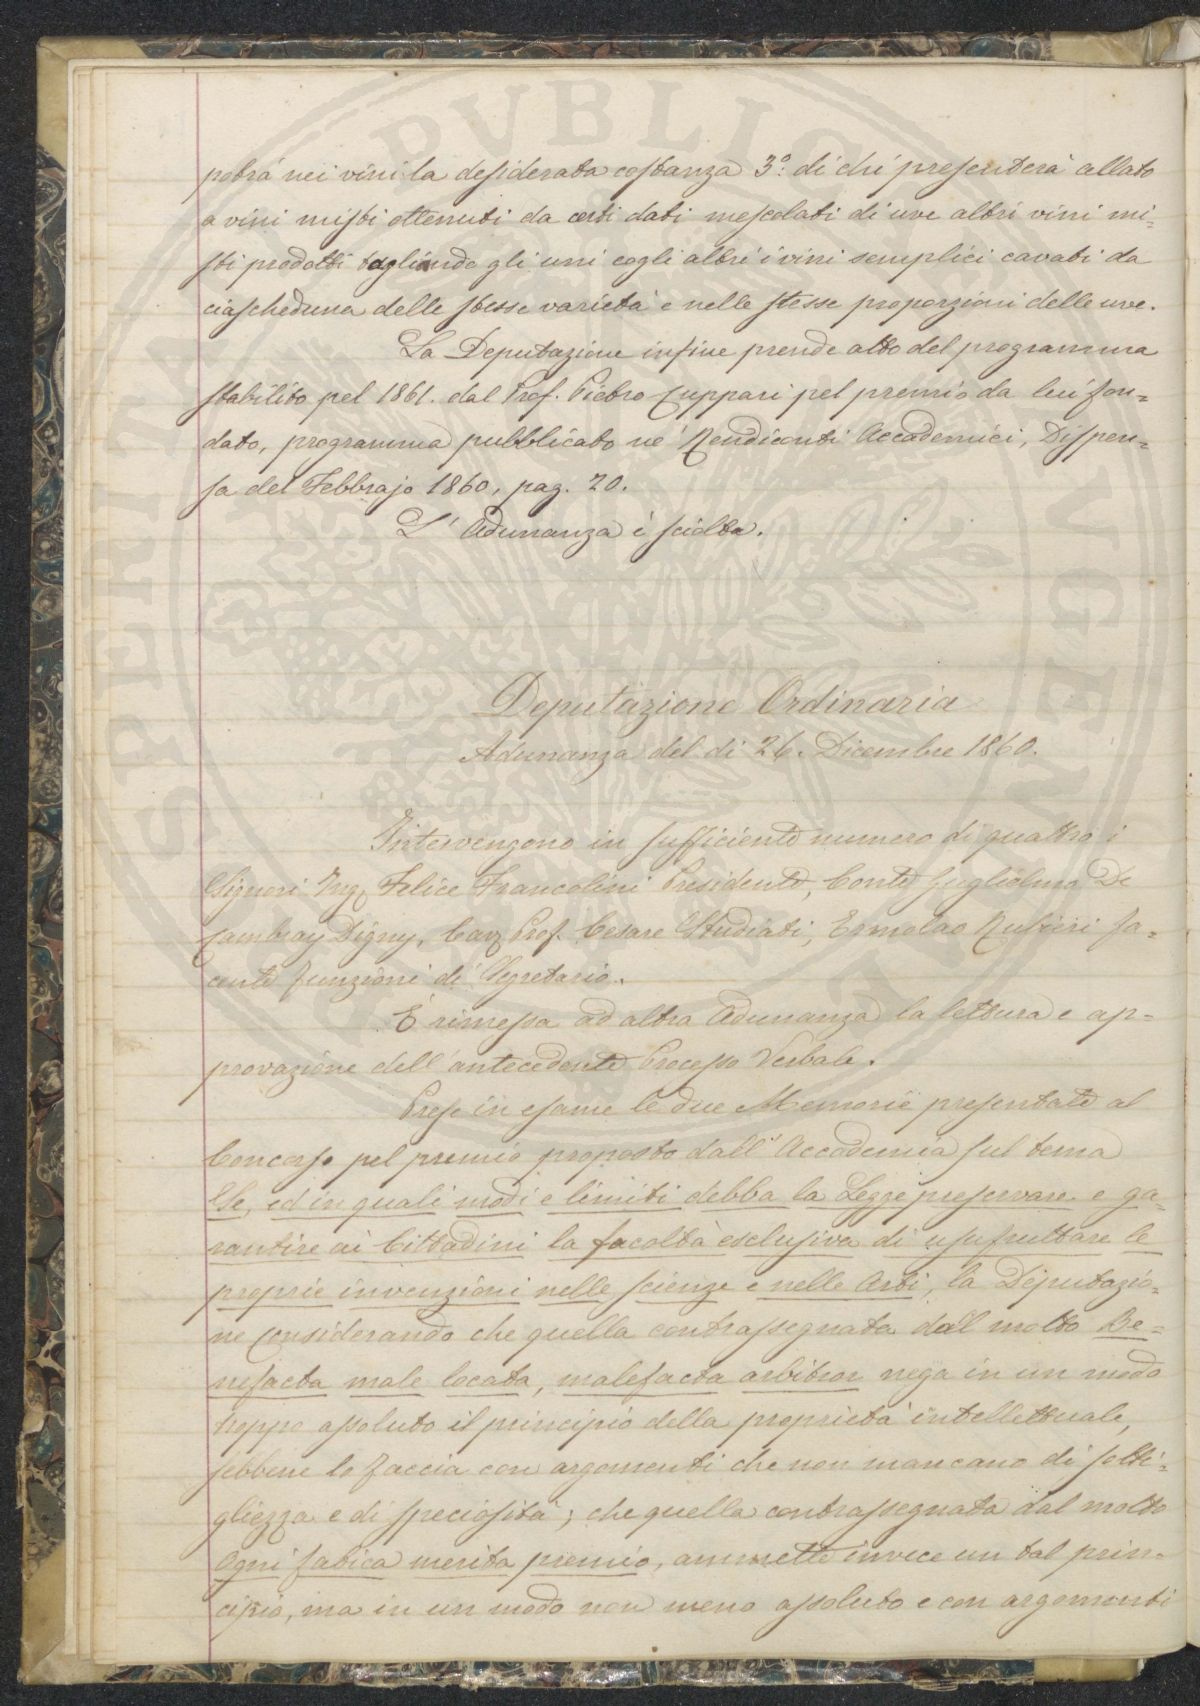 potrà nei vini la desiderata costanza 3.º di chi presenterà allato
a vini misti ottenuti da certi dati mescolati di uve altri vini mi=
sti prodotti tagliando gli uni cogli altri i vini semplici cavati da
ciascheduna delle stesse varietà e nelle stesse proporzioni delle uve.
La Deputazione infine prende atto del programma
stabilito pel 1861. dal Prof. Pietro Cuppari pel premio da lui fon=
dato, programma pubblicato ne' Rendiconti Accademici, Dispen=
sa del Febbrajo 1860, pag. 20.
L' Adunanza è sciolta.
Deputazione Ordinaria
Adunanza del dì 26. Dicembre 1860.
Intervengono in sufficiente numero di quattro i
Signori Ing. Felice Francolini Presidente, Conte Guglielmo De
Cambray Digny, Cav. Prof. Cesare Studiati, Ermolao Rubieri fa=
cente funzioni di Segretario.
È rimessa ad altra Adunanza la lettura e ap=
provazione dell' antecedente Processo Verbale.
Prese in esame le due Memorie presentate al
Concorso pel premio proposto dall' Accademia sul tema
Se, ed in quali modi e limiti debba la Legge preservare e ga=
rantire ai Cittadini la facoltà esclusiva di usufruttare le
proprie invenzioni nelle scienze e nelle Arti, la Deputazio=
ne considerando che quella contrassegnata dal motto Be=
nefacta male locata, malefacta arbitror nega in un modo
troppo assoluto il principio della proprietà intellettuale,
sebbene lo faccia con argomenti che non mancano di sotti=
gliezza e di speciosità; che quella contrassegnata dal motto
Ogni fatica merita premio, ammette invece un tal prin=
cipio, ma in un modo non meno assoluto e con argomenti